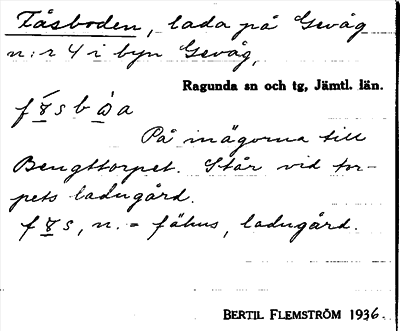 Fåsboden, lada på Gevåg
n:r 4 i byn Gevåg,
Ragunda sn och tg, Jämtl. län.
På inägorna till
Bengttorpet. Står vid tor-
pets ladugård.
n. = fähus, ladugård.
BERTIL FLEMSTRÖM 1936.